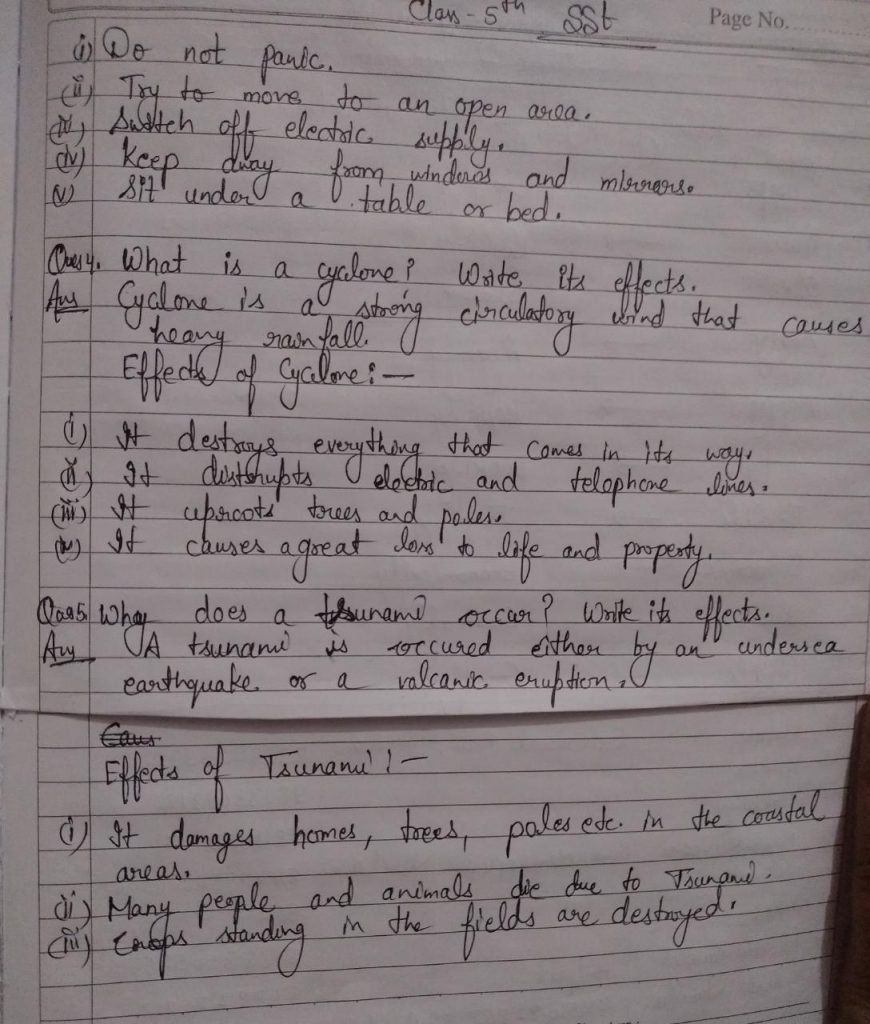 Class - 5th SSt Page No.
i) Do not panic.
(ii) Try to move to an open area.
(iii) Switch off electric supply.
(iv) Keep away from windows and mirrors.
(v) Sit under a table or bed.
Ques 4. What is a cyclone? Write its effects.
Ans Cyclone is a strong circulatory wind that causes
heavy rainfall.
Effects of Cyclone:—
(i) It destroys everything that comes in its way.
(ii) It disthrupts electric and telephone lines.
(iii) It uproots trees and poles.
(iv) It causes a great loss to life and property.
Ques 5. Why does a tsunami occur? Write its effects.
Ans A tsunami is occured either by an undersea
earthquake or a valcanic eruption.
Caus
Effects of Tsunami:—
(i) It damages homes, trees, poles etc. in the coastal
areas.
(ii) Many people and animals die due to Tsunami.
(iii) Crops standing in the fields are destroyed.